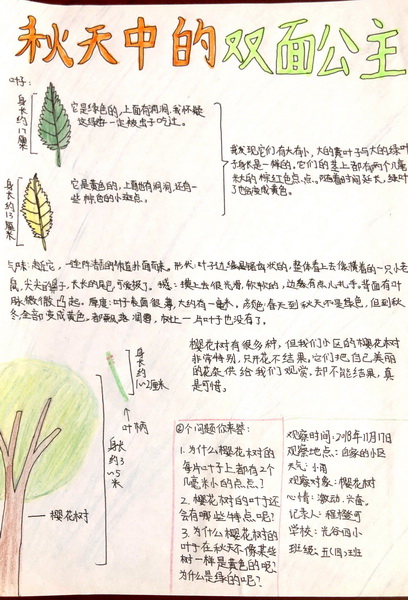 秋天中的双面公主
叶子:
身长约17厘米
它是绿色的,上面有两洞,我怀疑
这绿叶一定被虫子吃过。
身长约13厘米
它是黄色的,上面也有洞洞,还有一
些棕色的小斑点。
我发现它们有大有小,大的黄叶子与大的绿叶
子身长是一样的,它们的茎上都有两个几毫
米大的棕红色点、点。随着时间延长,绿叶
了也会变成黄色。
气味:凑近它,一连阵香甜的味道扑面而来。形状:叶子边缘是锯齿状的,整体看上去像横着的一只小老
鼠,尖尖的鼻子,长长的尾巴,可爱极了。感:摸上去很光滑,软软的,边缘有点儿扎手。背面有叶
脉微微凸起。厚度:叶子表面很薄,大约有一毫米。颜色:春天到秋天不是绿色,但到秋
冬,全部变成黄色。都飘落凋零,树上一片叶子也没有了。
樱花树有很多种,但我们小区的樱花树
非常特别,只开花不结果。它们把自己美丽
的花朵供给我们观赏,却不能结果,真
是可惜。
身长约1~2厘米
叶柄
身长约3~5米
樱花树
个问题你来答:
1.为什么樱花树的
每片叶子上都有2个
几毫米小的点点?
2.樱花树的叶子还
会有哪些特点呢?
3.为什么樱花树的
叶子在秋天不像某些
树一样是黄色的呢?
为什么是绿的呢?
观察时间:2018年11月17日
观察地点:自家的小区
天气:小雨
观察对象:樱花树
心情:激动、兴奋。
记录人:程橙可
学校:光谷四小
班级:五(四)班